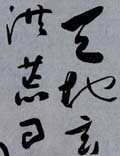 天地玄
洪荒日